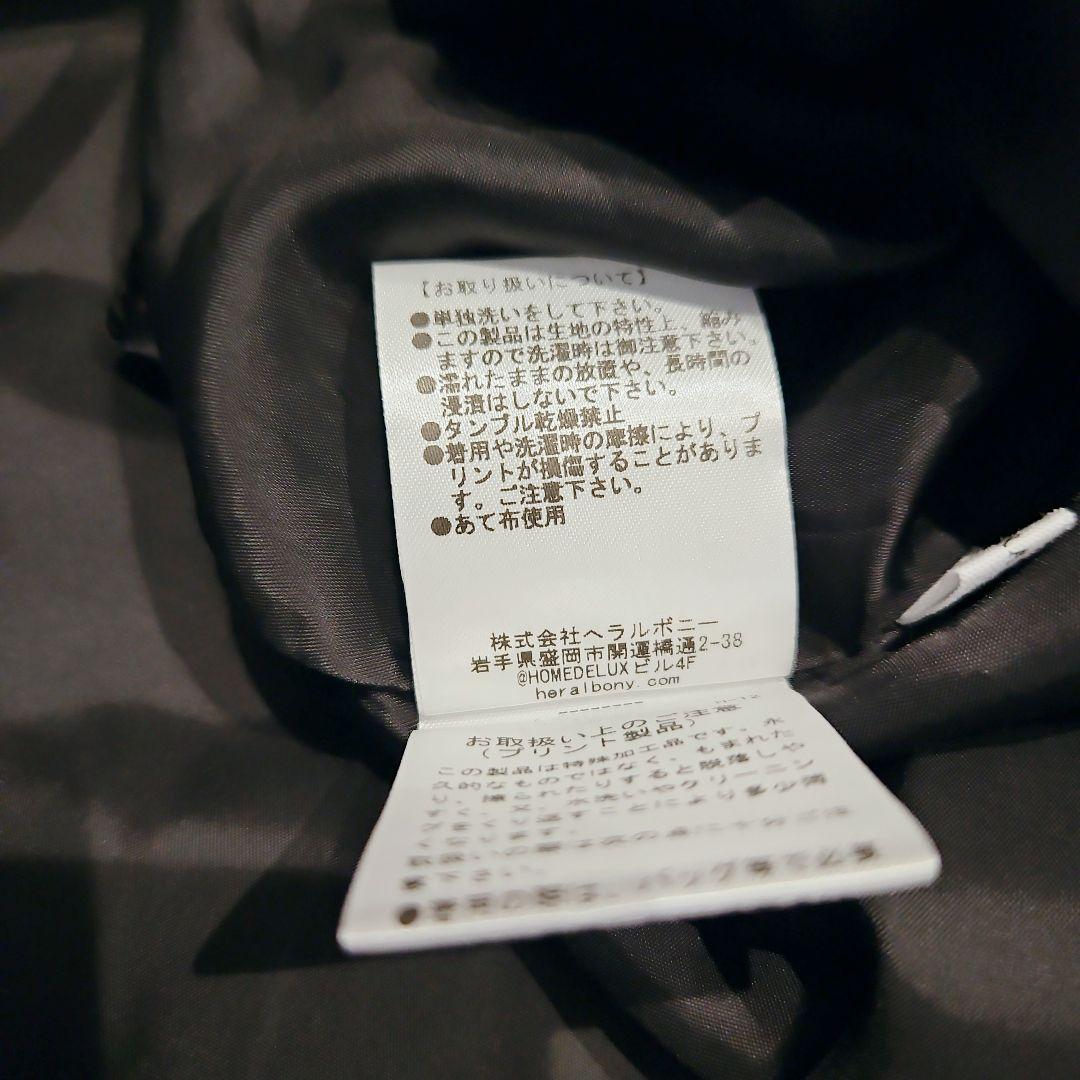 【お取り扱いについて】
●単独洗いをして下さい。
●この製品は生地の特性上、縮み
ますので洗濯時は御注意下さい。
●濡れたままの放置や、長時間の
浸漬はしないで下さい。
●タンブル乾燥禁止
●着用や洗濯時の摩擦により、プ
リントが損傷することがありま
す。ご注意下さい。
●あて布使用
株式会社ヘラルボニー
岩手県盛岡市開運橋通2-38
@HOMEDELUXビル4F
heralbony.com
お取扱い上のご注意
(プリント製品)
この製品は特殊加工品です。永
久的なものではなく、もまれた
り、擦られたりすると脱落しや
水洗いやクリーニン
により多少消